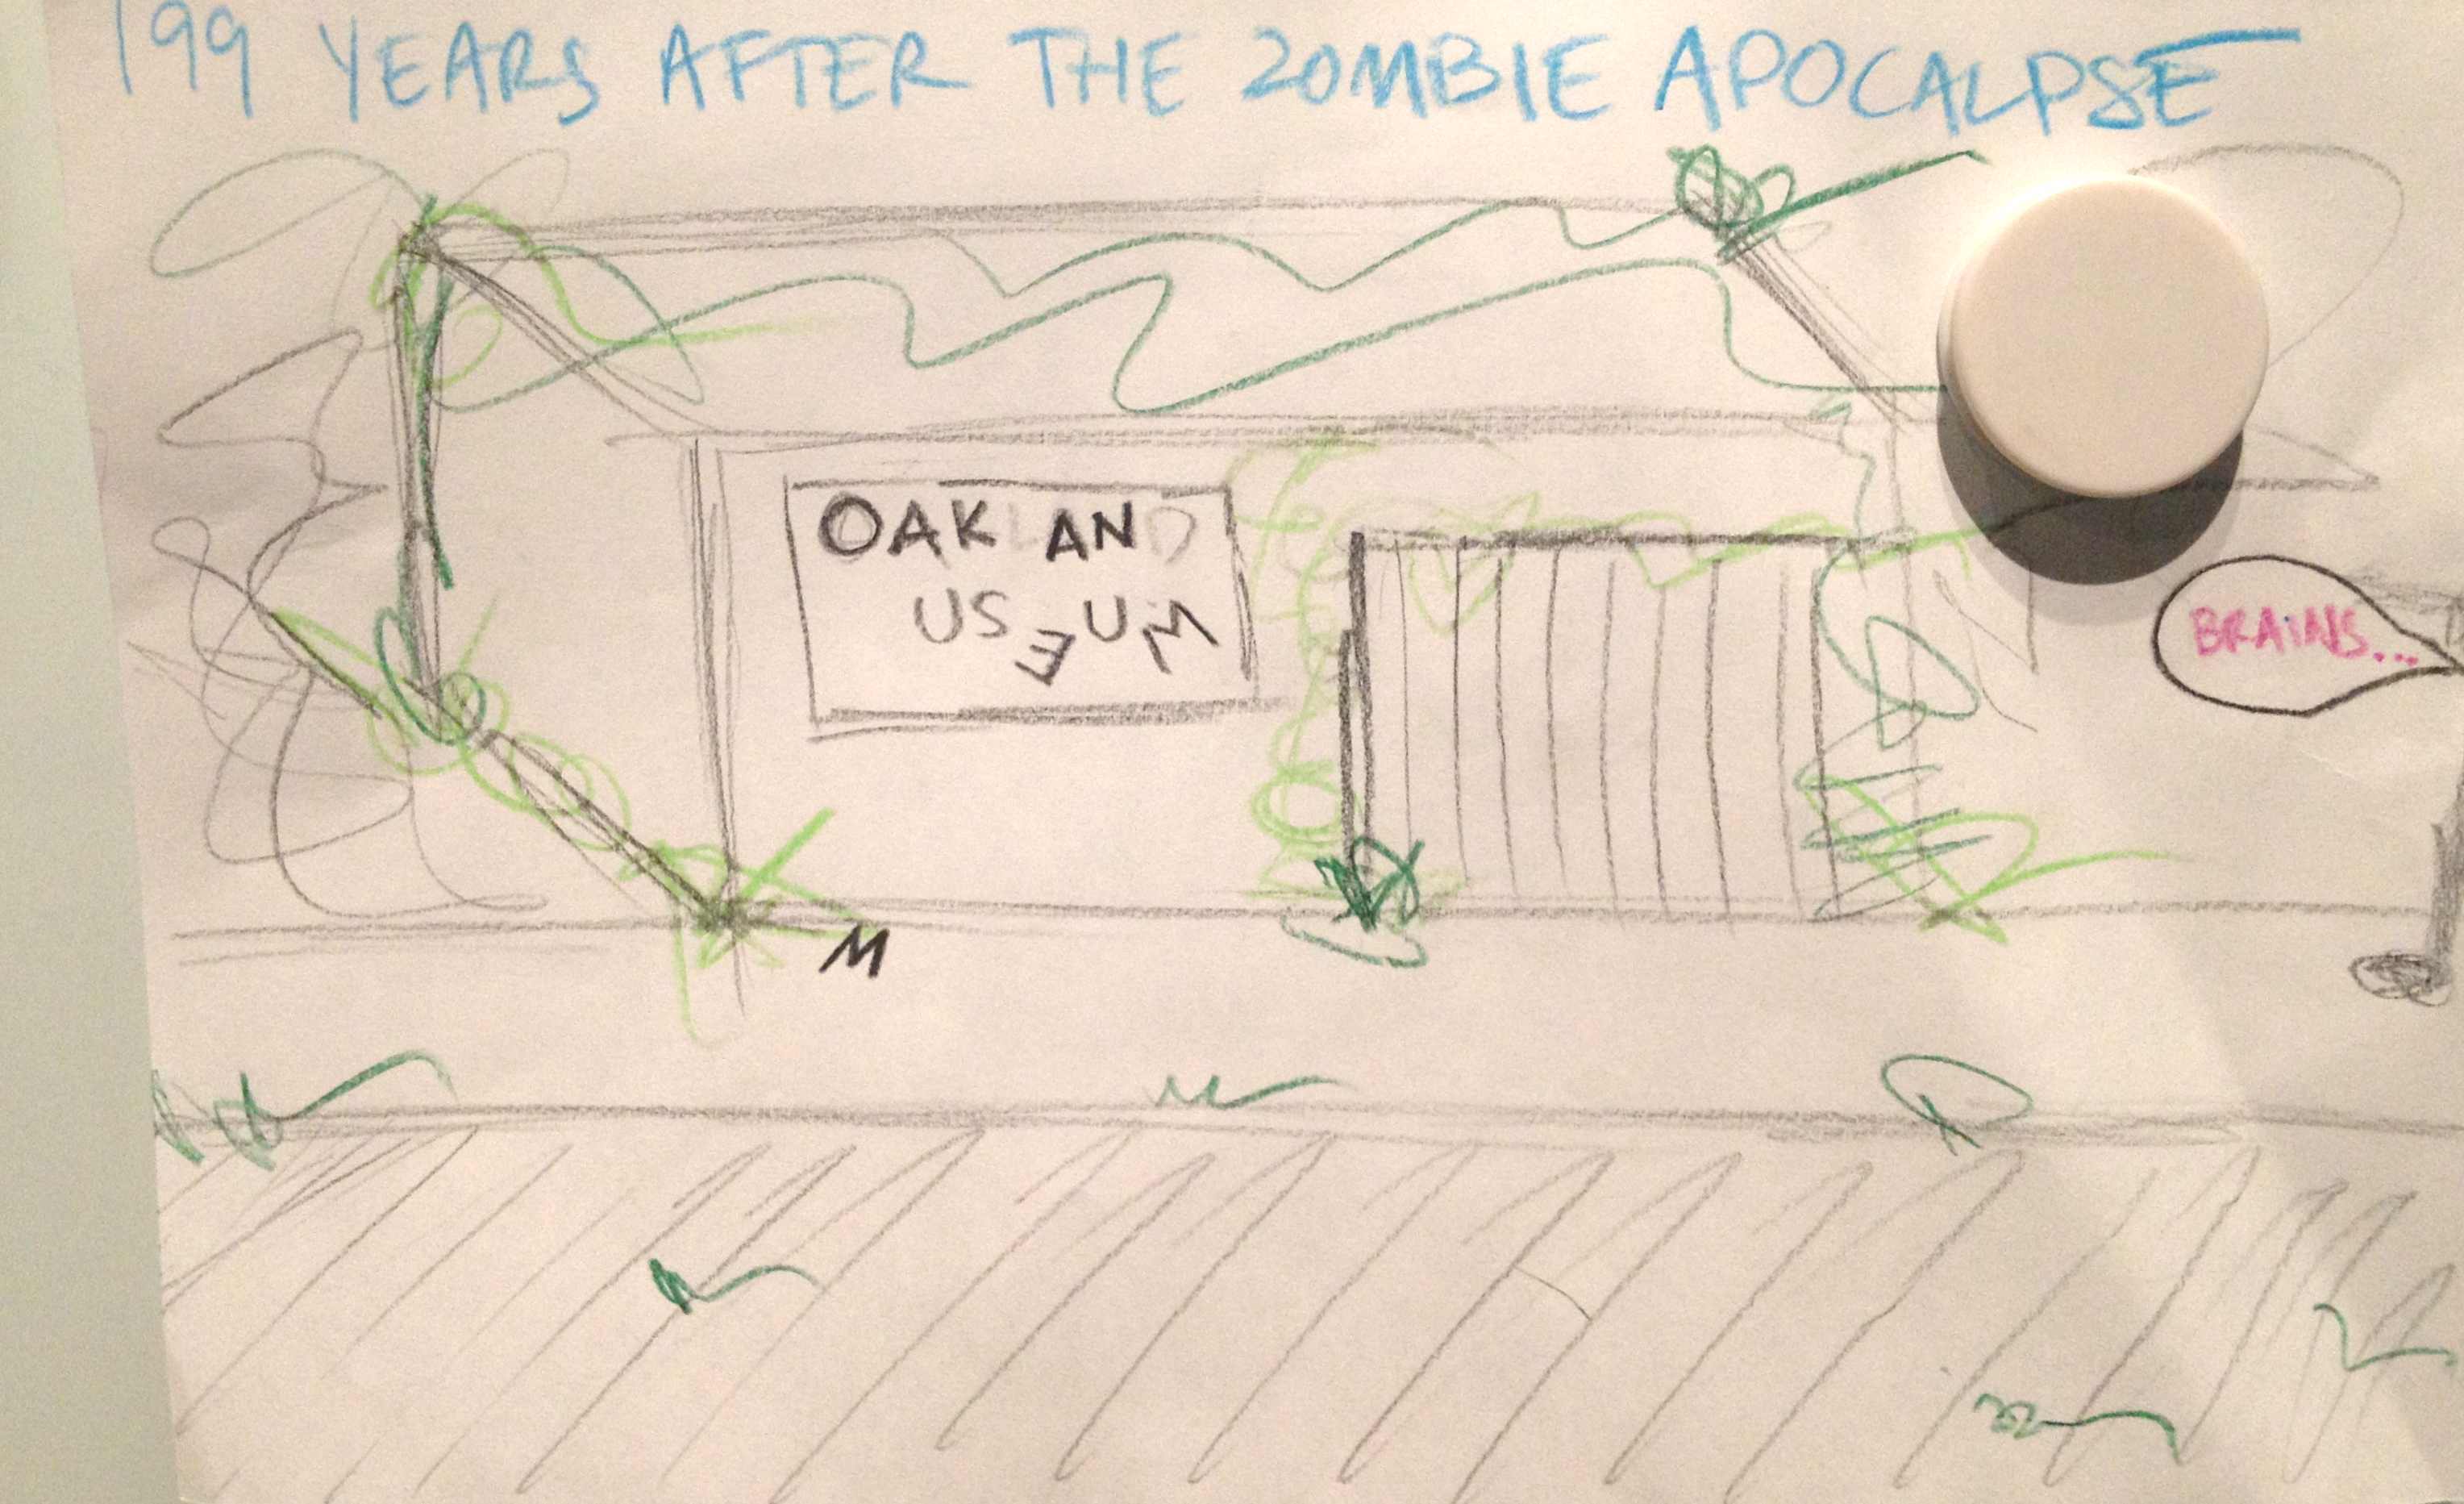 199 YEARS AFTER THE ZOMBIE APOCALPSE
OAKLAND
USEUM
BRAINS...
M